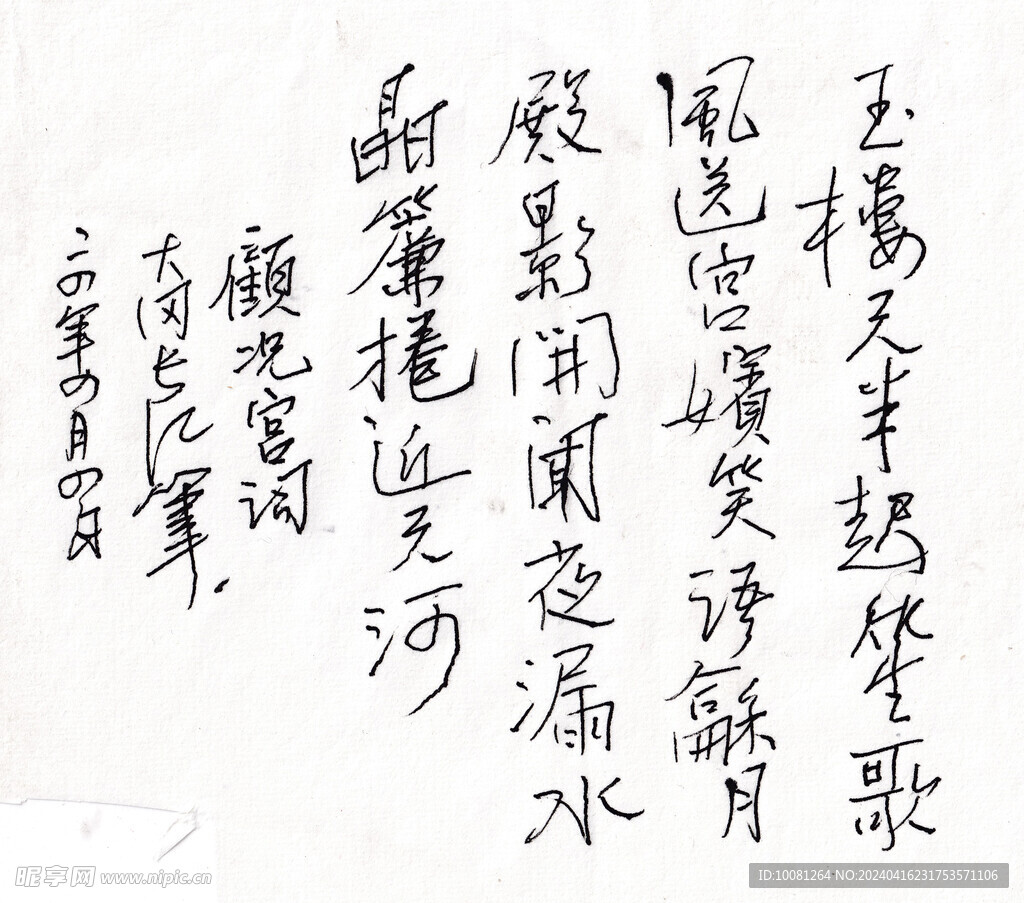 玉樓天半起笙歌
風送宫嬪笑語龢月
殿影開聞夜漏水
晶簾捲近天河
顧况宫词
大冈长江筆
二〇二四年四月四日
昵享网 www.nipic.cn
ID:10081264 NO:20240416231753571106